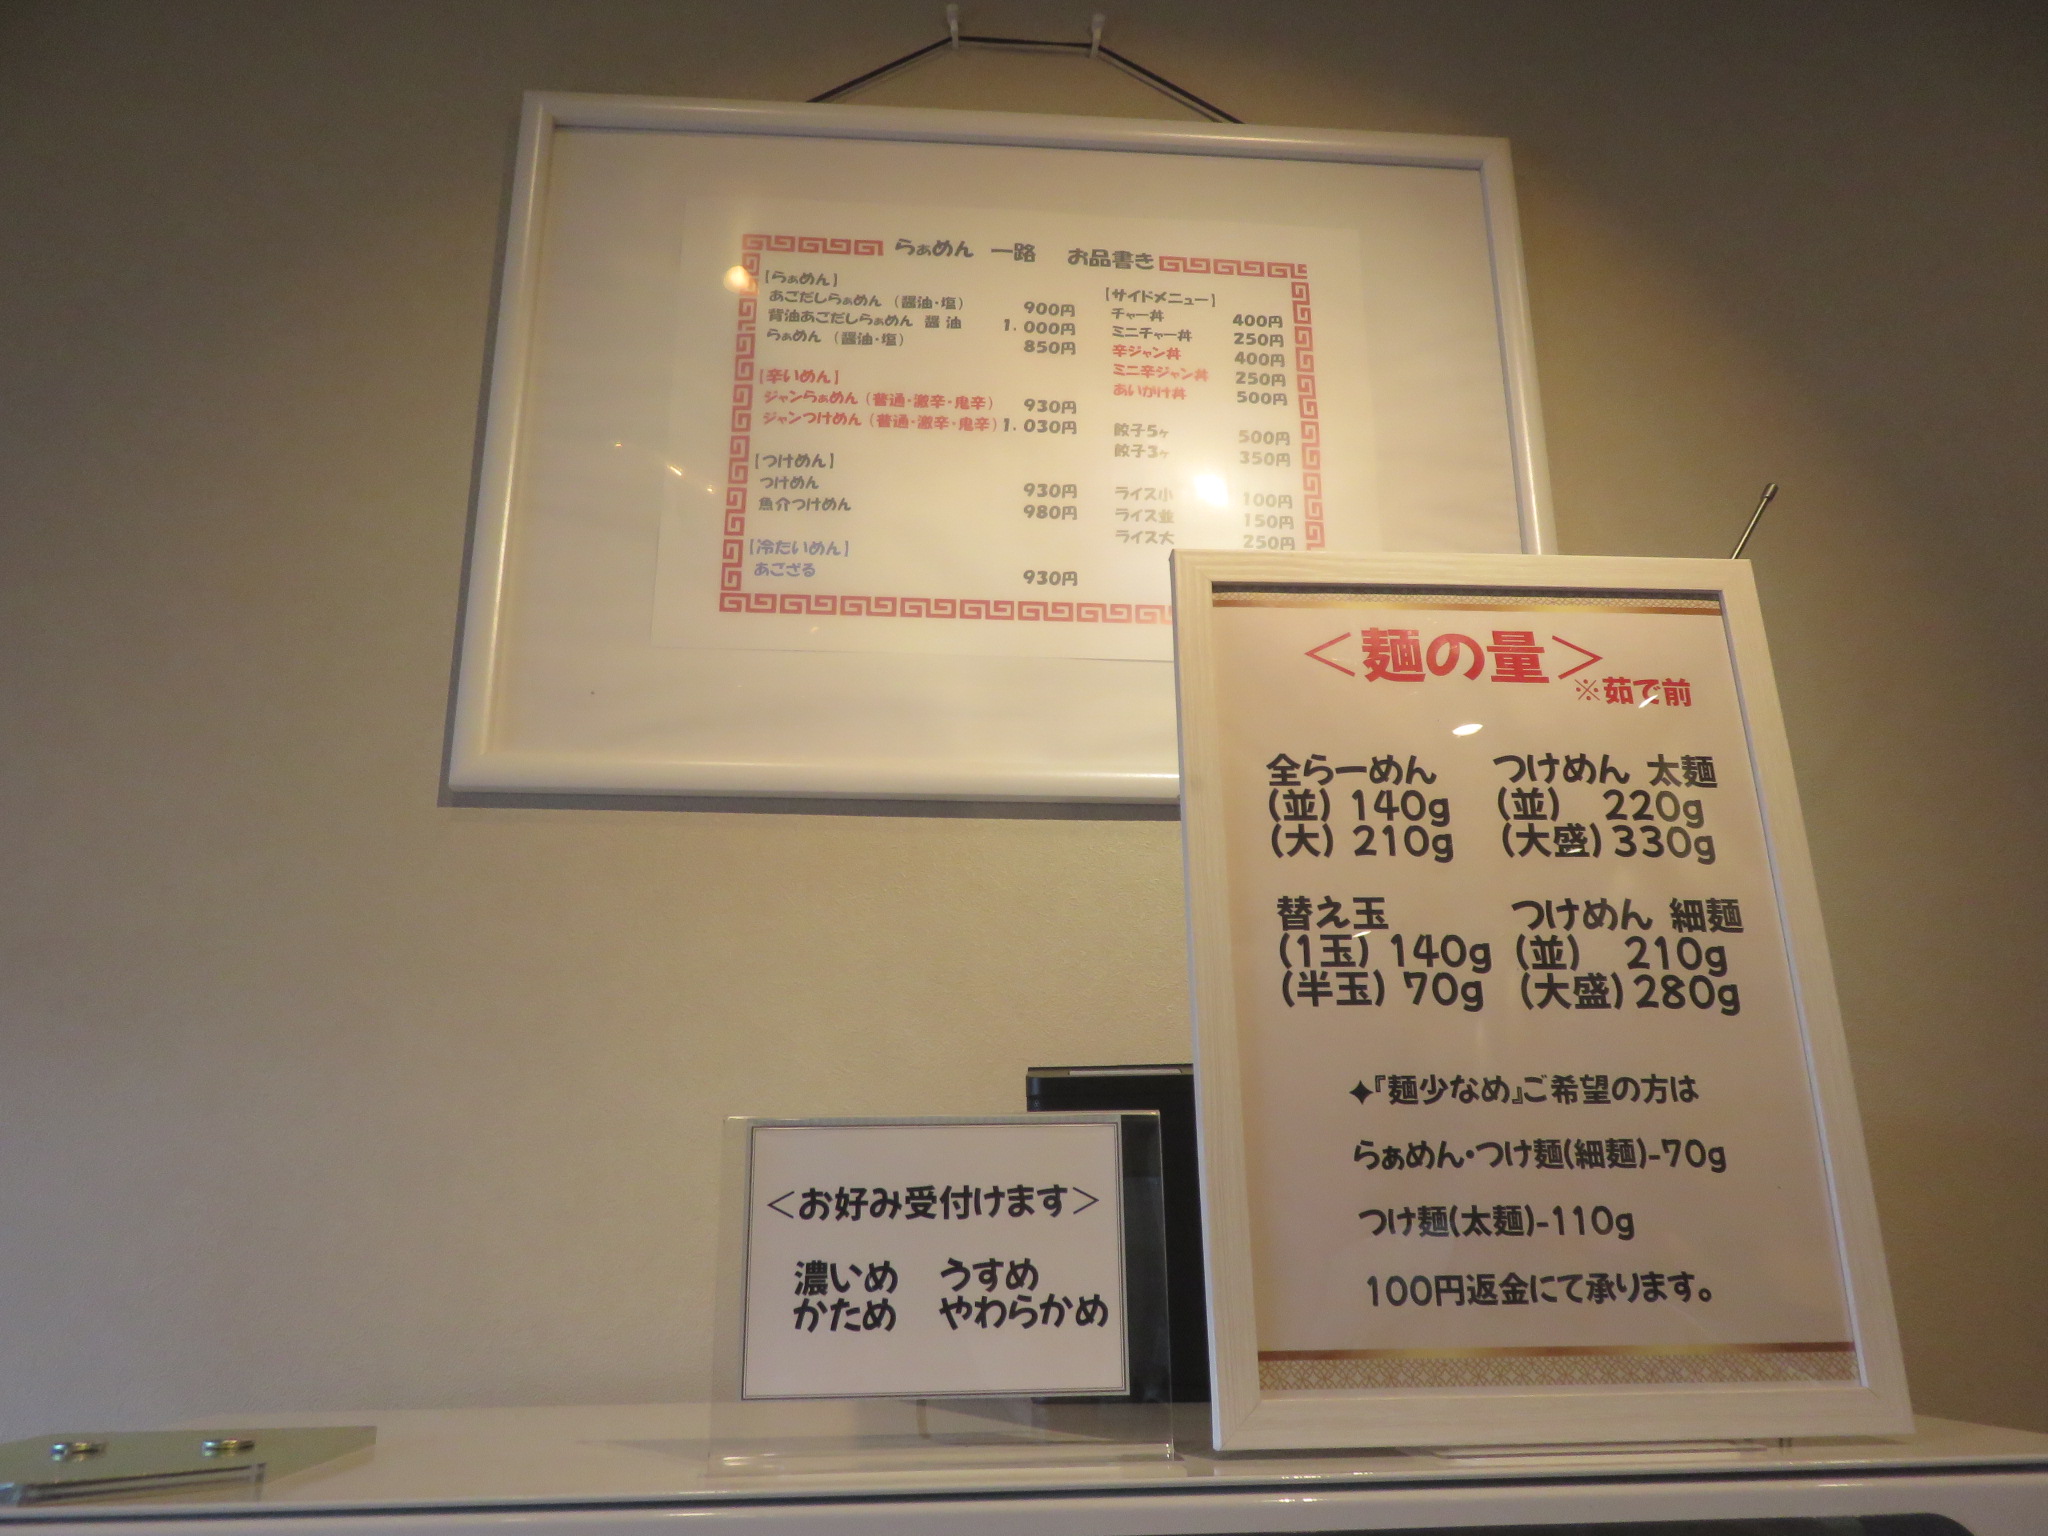 らぁめん 一路 お品書き
【らぁめん】
あごだしらぁめん (醤油・塩) 900円
背油あごだしらぁめん 醤油 1.000円
らぁめん (醤油・塩) 850円
【辛いめん】
ジャンらぁめん (普通・激辛・鬼辛) 930円
ジャンつけめん (普通・激辛・鬼辛) 1.030円
【つけめん】
つけめん 930円
魚介つけめん 980円
【冷たいめん】
あござる 930円
【サイドメニュー】
チャー丼 400円
ミニチャー丼 250円
辛ジャン丼 400円
ミニ辛ジャン丼 250円
あいがけ丼 500円
餃子5ヶ 500円
餃子3ヶ 350円
ライス小 100円
ライス並 150円
ライス大 250円
<麺の量>
※茹で前
全らーめん
(並) 140g
(大) 210g
つけめん 太麺
(並) 220g
(大盛) 330g
替え玉
(1玉) 140g
(半玉) 70g
つけめん 細麺
(並) 210g
(大盛) 280g
✦『麺少なめ』ご希望の方は
らぁめん・つけ麺(細麺)-70g
つけ麺(太麺)-110g
100円返金にて承ります。
<お好み受付けます>
濃いめ うすめ
かため やわらかめ